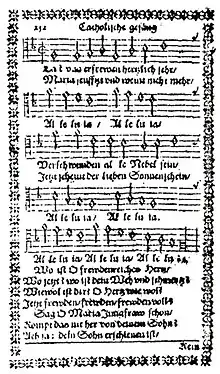 232 Catholische gesäng
Laßt uns erfrewen hertzlich sehr/
Maria seufftzt und weint nicht mehr/
Al le lu ia / Al le lu ia.
Verschwunden al le Nebel sein/
Jetzt scheint der lieben Sonnenschein/
Al le lu ia / Al le lu ia.
Al le lu ia / Al le lu ia / Al le lu ia,
Wo ist O frewdenreiches Hertz/
Wo jetzt ist dein Weh und schmertz
Wie wol ist dir O Hertz wie wol/
Jetzt frewden/ frewden/ frewden voll
Sag O Maria Jungfraw schön/
Kompt das nit her von deinem Sohn
Ach ja: dein Sohn erstanden ist/
Kein